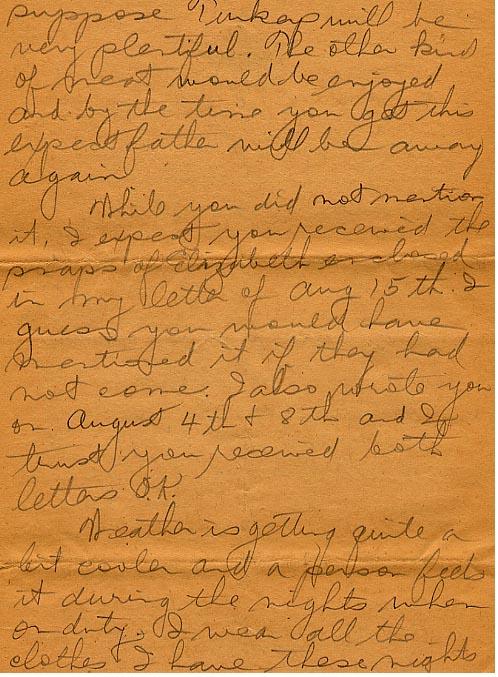 suppose Turkey will be
very plentiful. The other kind
of meat would be enjoyed
and by the time you get this
expect father will be away
again
While you did not mention
it, I expect you received the
snaps of Elizabeth enclosed
in my letter of Aug 15th. I
guess you would have
mentioned it if they had
not come. I also wrote you
on August 4th & 8th and I
trust you received both
letters O.K.
Weather is getting quite a
bit cooler and a person feels
it during the nights when
on duty. I wear all the
clothes I have these nights